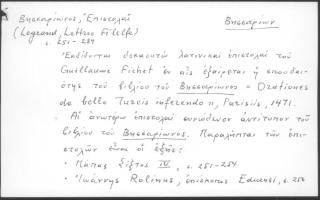 Βησσαρίωνος, Ἐπιστολαί
Βησσαρίων
(Legrand, Lettres Filelfe)
σ. 251-254
Ἐκδίδονται δεκαοκτώ λατινικαί ἐπιστολαί τοῦ
Guillaume Fichet ἐν αἷς ἐξαίρεται ἡ σπουδαι-
ότης τοῦ βιβλίου τοῦ Βησσαρίωνος = Orationes
de bello Turcis inferendo », Parisiis, 1471.
Αἱ ἀνωτέρω ἐπιστολαί συνώδευον ἀντίτυπον τοῦ
βιβλίου τοῦ Βησσαρίωνος. Παραλῆπται τῶν ἐπι-
στολῶν εἶναι οἱ ἑξῆς:
• Πάπας Σίξτος IV, σ. 251-254
• Ἰωάννης Rolinus, ἐπίσκοπος Eduensi, σ. 254